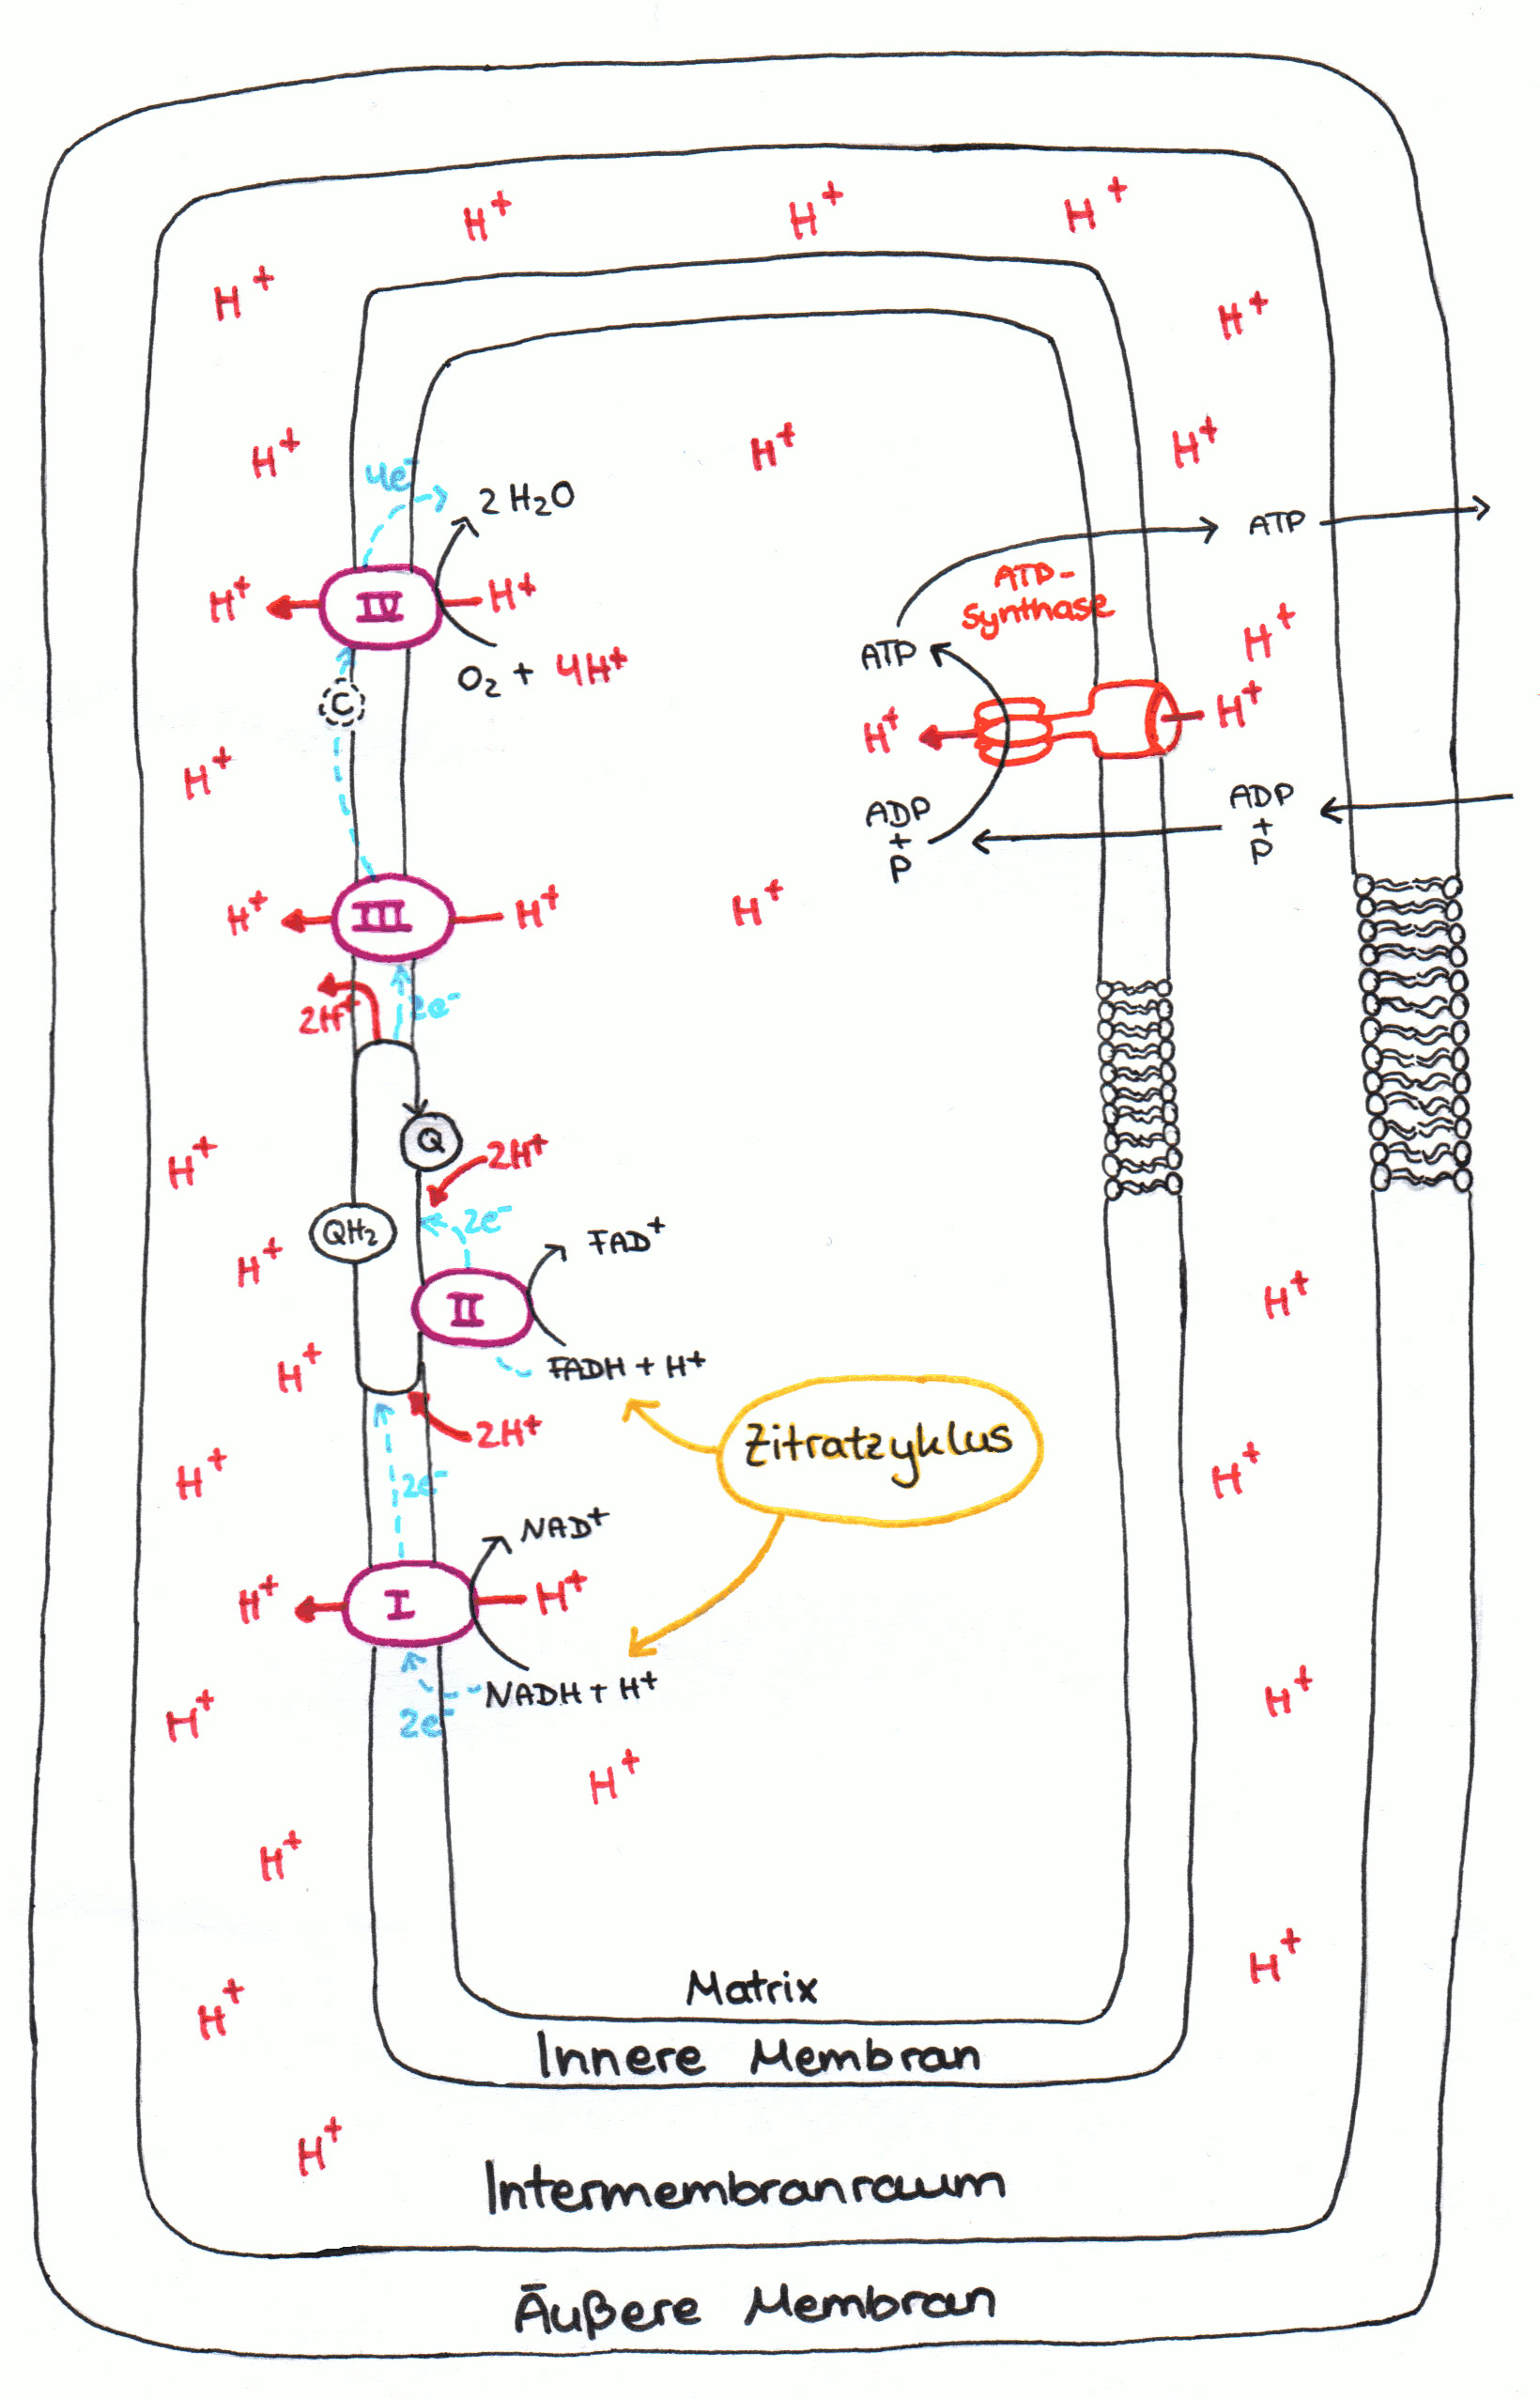 H+
H+
H+
H+
H+
H+
H+
H+
4e-
2 H2O
H+
IV
H+
O2 + 4H+
C
H+
ATP
ATP-
Synthase
ATP
H+
H+
H+
ADP
+
P
ADP
+
P
H+
III
H+
H+
2H+
2e-
Q
2H+
H+
QH2
2e-
FAD+
H+
II
H+
FADH + H+
H+
2H+
Zitratzyklus
2e-
H+
H+
NAD+
H+
I
H+
NADH + H+
2e-
H+
H+
H+
H+
H+
H+
Matrix
Innere Membran
H+
Intermembranraum
Äußere Membran